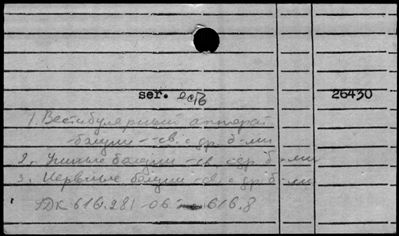 ser. 26430
1. Вестибулярный аппарат
-болезни -св. с др. б-ми
2. Ушные болезни -св. с др. б-ми
3. Нервные болезни -св. с др. б-ми
УДК 616.281-06 616.8